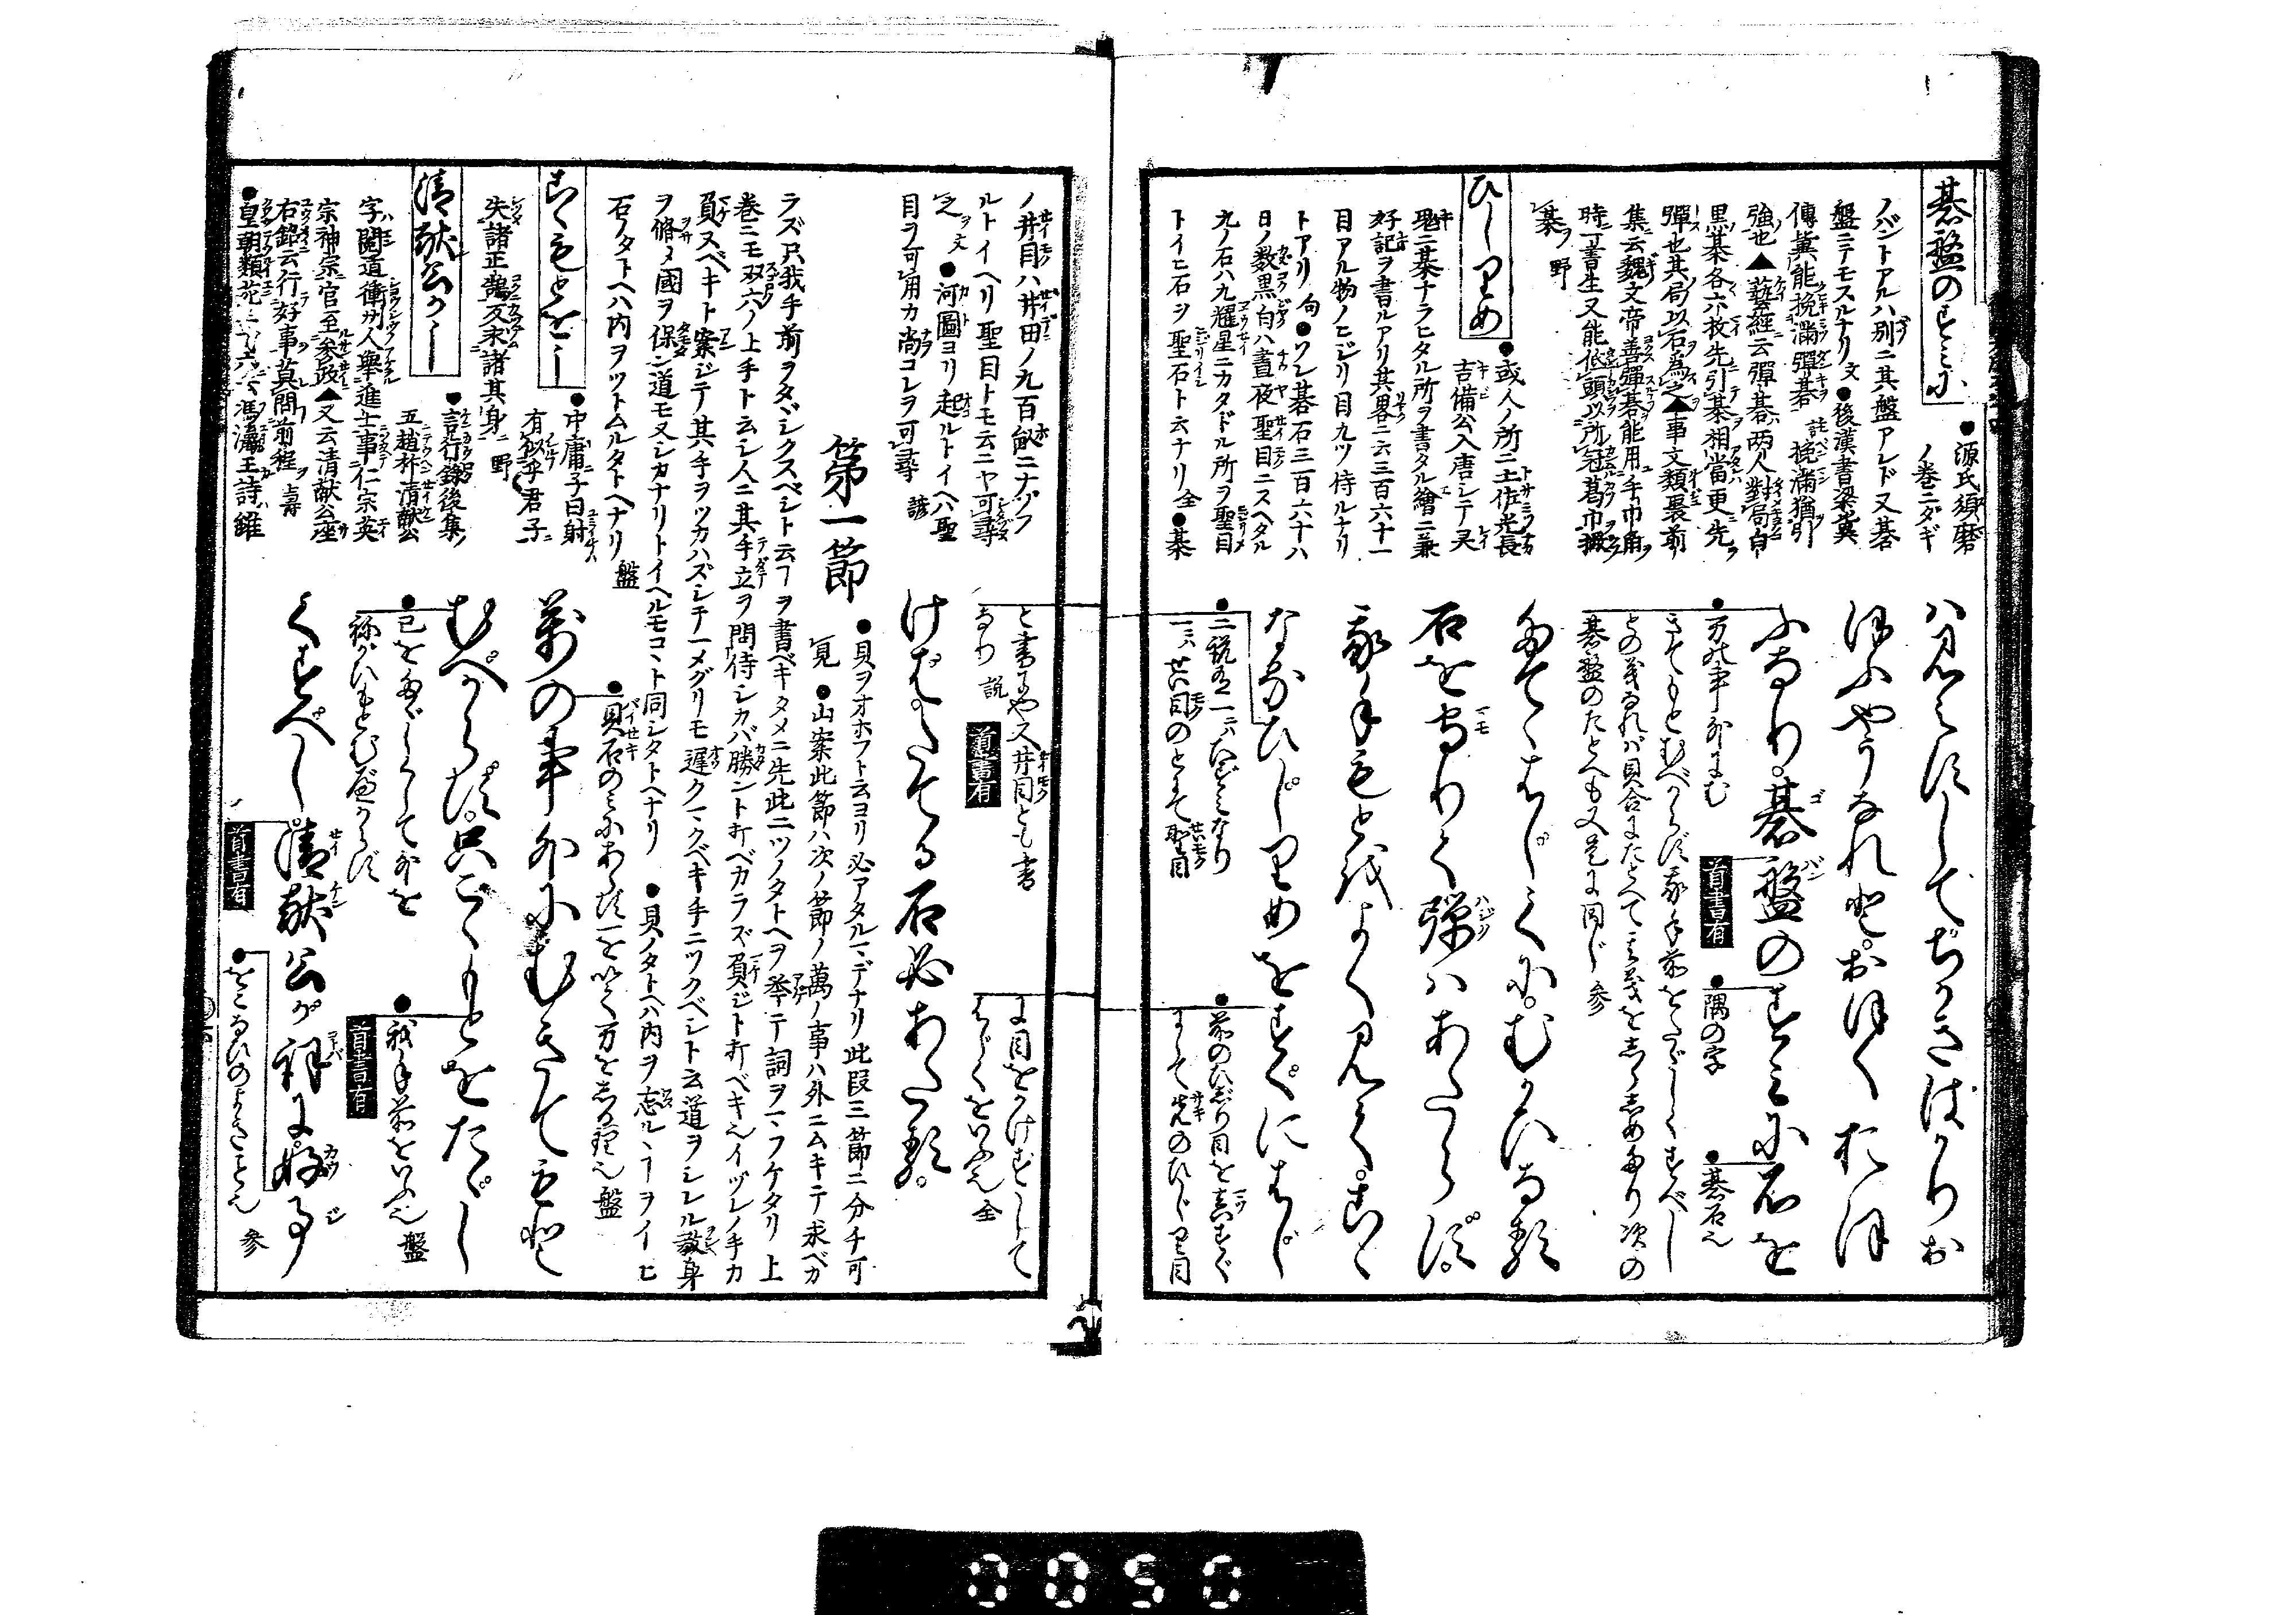 碁盤のすみに
●源氏須磨
ノ巻ニダギ
ノバントアルハ別ニ其盤アレド又碁
盤ニテモスルナリ 文 ●後漢書梁冀
傳冀能挽滿彈碁 註 挽滿猶引
強也▲藝經云彈碁両人對局白
黒棊各六枚先引棊相當更先
彈也其局以石為之▲事文類聚前
集云魏文帝善彈碁能用手巾角
時一書生又能低頭以所冠葛巾撥
棊 野
ひじりめ
●或人ノ所ニ土佐光長
吉備公入唐シテ
碁ナラヒタル所ヲ書タル繪ニ兼
好記ヲ書ルアリ其畧ニ云三百六十一
目アル物ノヒジリ目九ツ侍ルナリ
トアリ 句 ●ワン碁石三百六十ハ
日ノ数黒白ハ晝夜聖目ニスヘタル
九ノ石ハ九耀星ニカタドル所ヲ聖目
トイヒ石ヲ聖石ト云ナリ 全 ●棊
ハ見えずしてちかきばかりお
ほふやうなれどおほくおほ
ふなり。碁盤のすみに石を
●万の事外にむ
きてもとむべからず我手前をたゞしくすべし
との義なれバ貝合にたとへて
碁盤のたとへも又是に同じ 参
首書有
●隅の字
●碁石也
たてゝはじくに。むかひなる
石をまもりて弾ハあたらず。
我手もとをよく見て。こゝ
なるひじりめをすぐにはじ
●前のひじり目を真すぐ
にして先のひじり目
ノ井目ハ井田ノ九百畝ニナゾフ
ルトイヘリ聖目トモ云ニヤ可尋
之 文 ●河圖ヨリ起ルトイヘハ聖
目ヲ可用カ尚コレヲ可尋 諺
と書にや又井目とも書
なり 説
首書有
に目をかけずして
はじくをいふ也 全
けば。たてる石必あたる。
第一節
●貝ヲオホフト云ヨリ必アタルマデナリ此段三節ニ分チ可
見 ●山案此節ハ次ノ節ノ萬ノ事ハ外ニムキテ求ベカ
ラズ只我手前ヲタヾシクスベシト云フヲ書ベキタメニ先此二ツノタトヘヲ挙テ詞ヲマフケタリ上
巻ニモ双六ノ上手ト云シ人ニ其手立ヲ問侍シカバ勝ント打ベカラズ負ジト打ベキ也イヅレノ手カ
負ヌベキト案ジテ其手ヲツカハズシテ一メグリモ遅クマクベキ手ニツクベシト云道ヲシレル教身
ヲ脩メ國ヲ保ン道モ又シカナリトイヘルモコヽト同シタトヘナリ ●貝ノタトヘハ内ヲ志ルヽヿヲイヒ
石ノタトヘハ内ヲツトムルタトヘナリ 盤
●貝石のみにあらず一を以て万をしる理也 盤
萬の事外にむきてもと
こゝもとを
●中庸子曰射
有似乎君子
失諸正鵠反求諸其身 野
むべからず。只こゝもとをたゞし
●己をたゞしくして外を
ねがひもとむべからず
●我手前をいふ也 盤
首書有
清献公が
●言行録後集
五趙抃清献公
字閲道衢州人舉進士事仁宗英
宗神宗官至參政▲又云清献公座
右銘云行好事莫問前程 壽
●皇朝類苑三六云馮瀛王詩雖
くすべし。清献公が詞に好事
首書有
●をこなひのよきこと也 参
0050